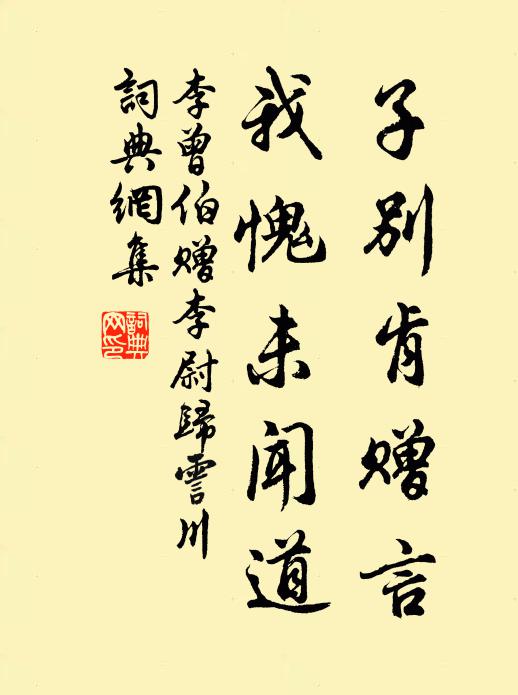 子别肯赠言
我愧未闻道
李曾伯赠李尉歸霅川
詞典網集
詞典网印